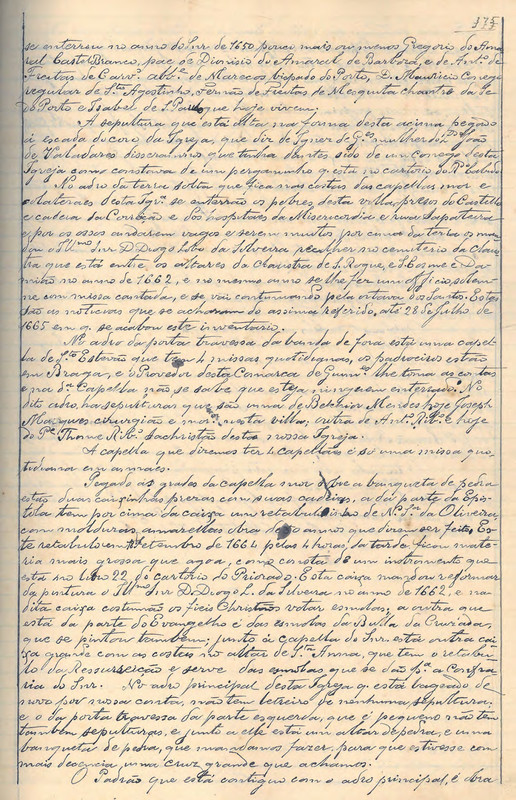 175
se enterrou no anno do Snr de 1650 pouco mais ou menos Gregorio do Ama
ral Castel Branco, pae de Dionisio do Amaral de Barbora, e de Antº de
Freitas de Carvº abbº de Marecos bispado do Porto, D. Mauricio Conego
regular de Stº Agostinho, Fernão de Freitas de Mesquita chantre da Sé
do Porto e Isabel de S. Paulo que hoje vivem.
A sepultura que está alta na forma desta acima pegado
á escada do coro da Igreja, que diz de Ignez de Gºs mulher do Lºº João
de Valadares disseram-nos que tinha dantes sido de um conego desta
Igreja como constava de um pergaminho q. está no cartorio do Rº Cabido
No adro da terra solta que fica nas costas das capellas mor e
colateraes desta Igrª se enterrão os pobres desta villa, presos do Castello
e cadeia da Correição e dos hospitaes da Misericordia e rua Sapateira
e por os ossos andarem vagos e serem muitos por cima da terra os man
dou o Illmo Snr D. Diogo Lobo da Silveira recolher no cemiterio da claus
tra que está entre os altares da claustra de S. Roque, e S. Cosme e Da
mião no anno de 1662, e no mesmo anno se lhe fez um officio solem
ne com missa cantada, e se vai continuando pela oitava dos Santos. Estas
são as noticias que se acharam do assima referido, até 28 de Julho de
1665 em q. se acabou este inventario.
No adro da porta travessa da banda de fora está uma capel
la de Stº Estevão que tem 4 missas quotidianas, os padroeiros estão
em Braga, e o Provedor desta Comarca de Guimes lhe toma as contas
e na dª Capella não se sabe que esteja ninguem enterrado. No
dito adro, ha sepulturas que são uma de Belchior Mendes hoje Joseph
Marques cirurgião e morº nesta villa, outra de Antº Rºº e hoje
do Pe Thomé Rºº sachristão desta nossa Igreja.
A capella que diremos ter 4 capellães é só uma missa quo
tidiana em annaes.
Pegado as grades da capella mor sobre a banqueta de pedra
estão duas caixinhas prezas com suas cadeias, a da parte da Epis
tola tem por cima da caixa um retabulosinho de N. Srª da Oliveira
com molduras, amarellas obra de annos que dizem ser feito. Es
te retabulo em Setembro de 1664 pelas 4 horas da tarde ficou mate
ria mais grossa que agoa, como consta de um instromento que
está no libro 22 do cartorio do Priorado. Esta caixa mandou reformar
da pintura o Illmo Snr D. Diogo L. da Silveira no anno de 1662, e na
dita caixa costumão os fieis Christãos votar esmolas, a outra que
está da parte do Evangelho é das esmolas da Bulla da Cruzada,
que se pintou tambem; junto á capella do Snr. está outra cai
xa grande com as costas no altar de Stª Anna, que tem o retabu
lo da Ressurreição e serve das esmolas que se dão pª a Confra
ria do Snr. No adro principal desta Igreja q. está lageado de
novo por nossa conta, não tem letreiro de nenhuma sepultura;
e o da porta travessa da parte esquerda, que é pequeno não tem
tambem sepulturas, e junto a elle está um altar de pedra, e uma
banqueta de pedra, que mandamos fazer para que estivesse com
mais decencia, uma cruz grande que achamos.
O Padrão que está contiguo com o adro principal, é obra